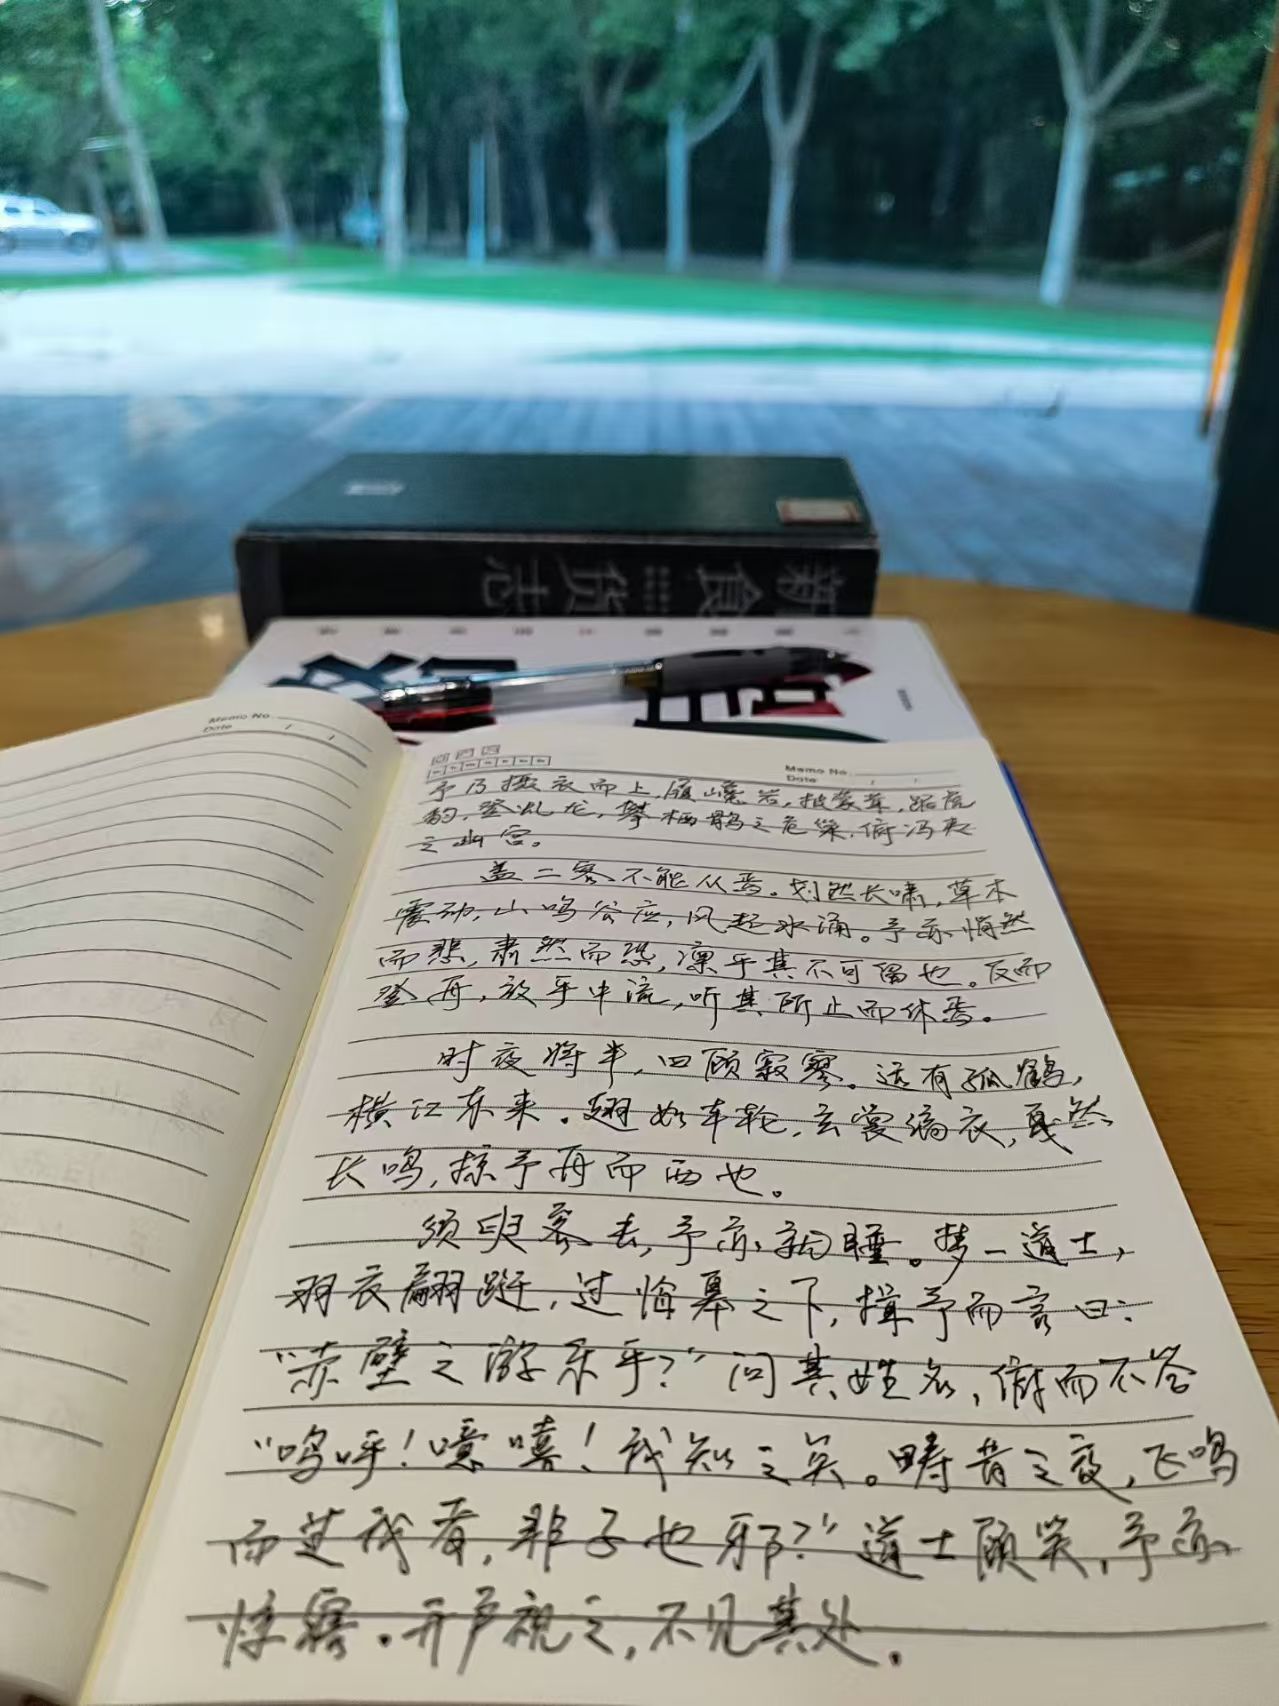 新食货志
Memo No.
Date / /
Memo No.
Date / /
予乃摄衣而上,履巉岩,披蒙茸,踞虎
豹,登虬龙,攀栖鹘之危巢,俯冯夷
之幽宫。
盖二客不能从焉。划然长啸,草木
震动,山鸣谷应,风起水涌。予亦悄然
而悲,肃然而恐,凛乎其不可留也。反而
登舟,放乎中流,听其所止而休焉。
时夜将半,四顾寂寥。适有孤鹤,
横江东来。翅如车轮,玄裳缟衣,戛然
长鸣,掠予舟而西也。
须臾客去,予亦就睡。梦一道士,
羽衣翩跹,过临皋之下,揖予而言曰:
“赤壁之游乐乎?”问其姓名,俯而不答
“呜呼!噫嘻!我知之矣。畴昔之夜,飞鸣
而过我者,非子也邪?”道士顾笑,予亦
惊寤。开户视之,不见其处.